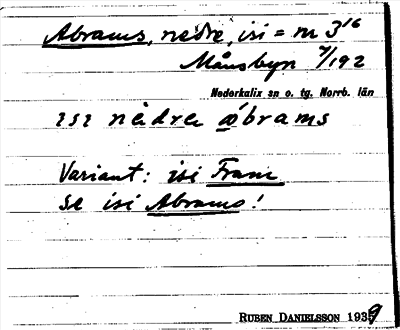 Abrams, nedre, isi = m 3¹⁶
Månsbyn 7/192
Nederkalix sn o. tg. Norrb. län
ısı nèdrɐ àbrams
Variant: isi Fram
Se isi Abrams!
RUBEN DANIELSSON 1939